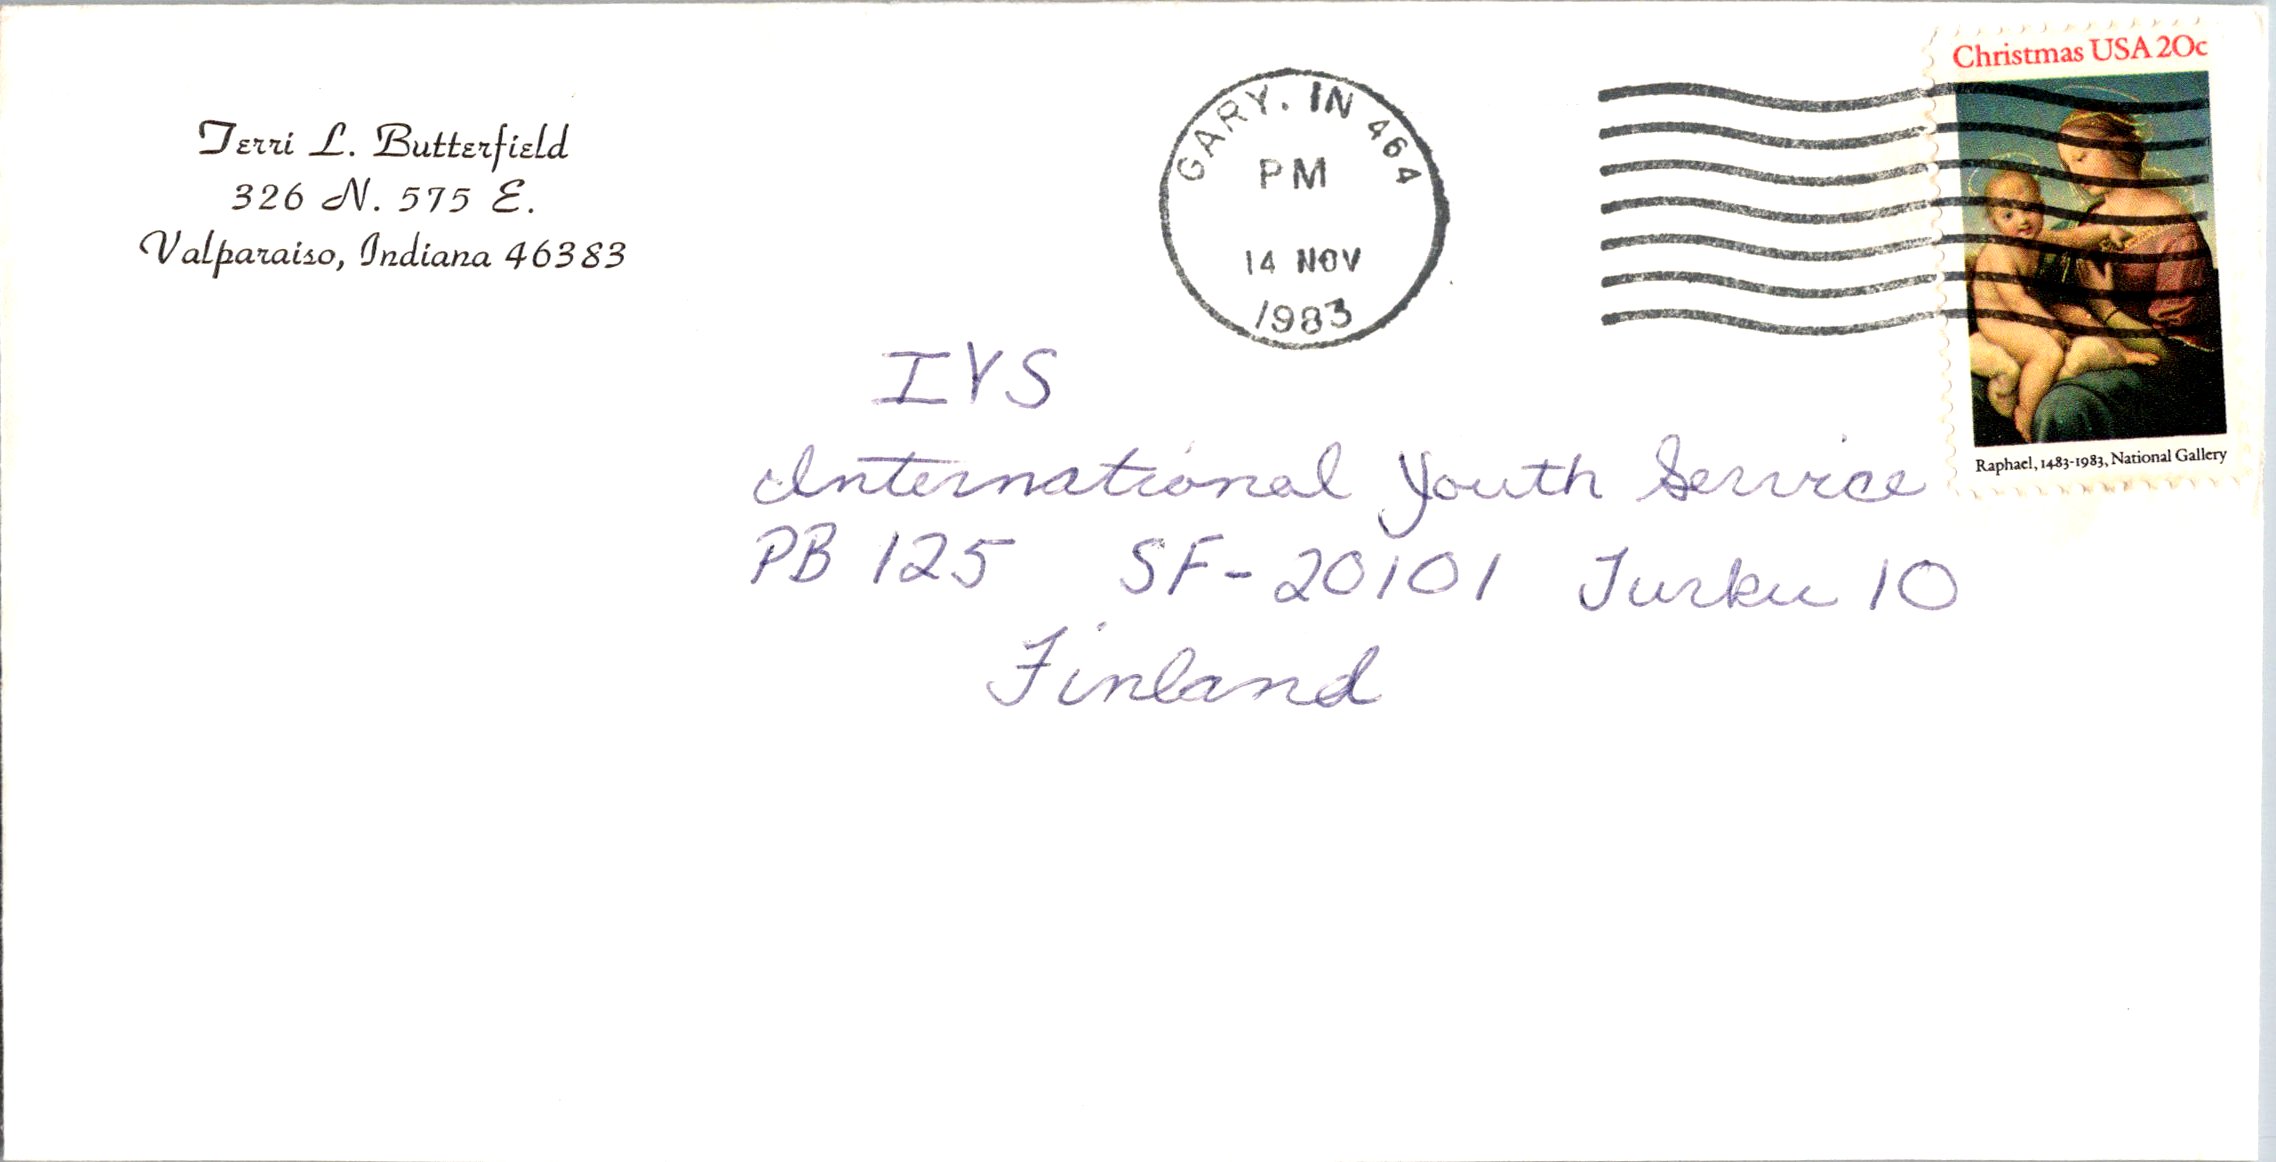 Terri L. Butterfield
326 N. 575 E.
Valparaiso, Indiana 46383
GARY, IN 464
PM
14 NOV
1983
Christmas USA 20c
Raphael, 1483-1983, National Gallery
IYS
International Youth Service
PB 125 SF-20101 Turku 10
Finland